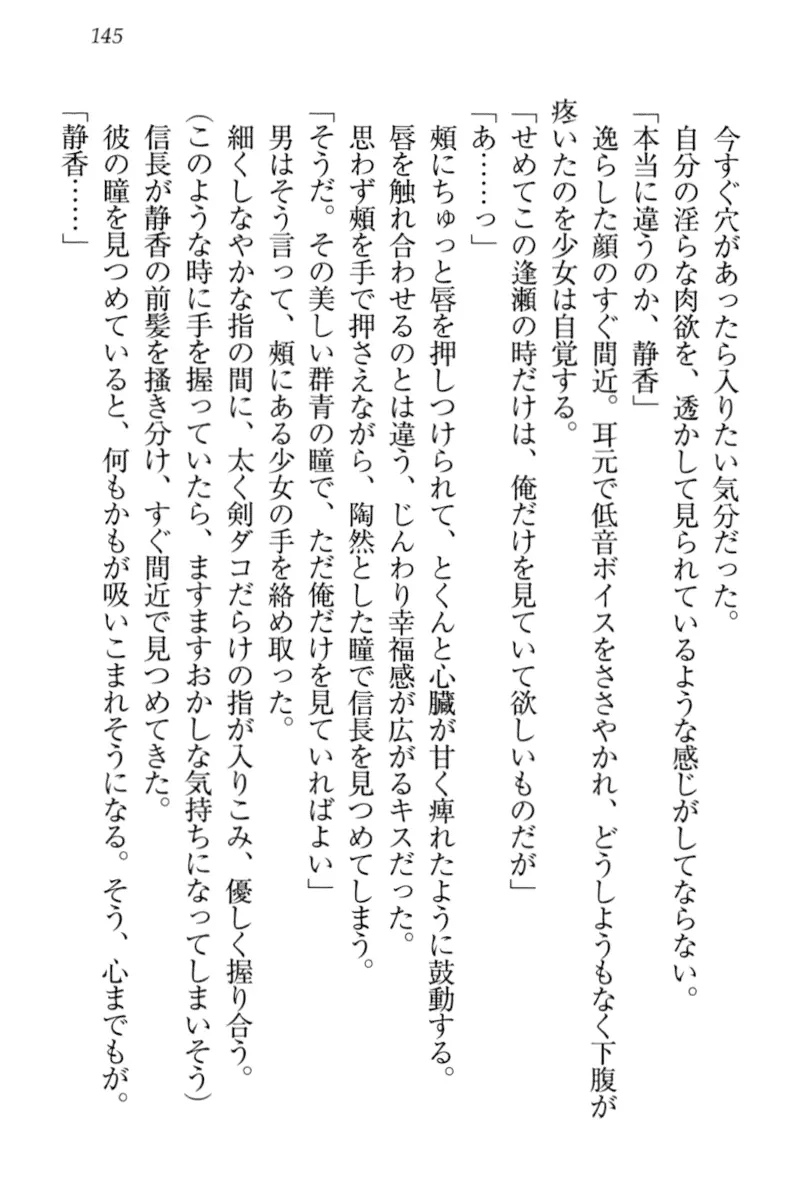 145
今すぐ穴があったら入りたい気分だった。
自分の淫らな肉欲を、透かして見られているような感じがしてならない。
「本当に違うのか、静香」
逸らした顔のすぐ間近。耳元で低音ボイスをささやかれ、どうしようもなく下腹が
疼いたのを少女は自覚する。
「せめてこの逢瀬の時だけは、俺だけを見ていて欲しいものだが」
「あ……っ」
頰にちゅっと唇を押しつけられて、とくんと心臓が甘く痺れたように鼓動する。
唇を触れ合わせるのとは違う、じんわり幸福感が広がるキスだった。
思わず頰を手で押さえながら、陶然とした瞳で信長を見つめてしまう。
「そうだ。その美しい群青の瞳で、ただ俺だけを見ていればよい」
男はそう言って、頰にある少女の手を絡め取った。
細くしなやかな指の間に、太く剣ダコだらけの指が入りこみ、優しく握り合う。
(このような時に手を握っていたら、ますますおかしな気持ちになってしまいそう)
信長が静香の前髪を掻き分け、すぐ間近で見つめてきた。
彼の瞳を見つめていると、何もかもが吸いこまれそうになる。そう、心までもが。
「静香……」